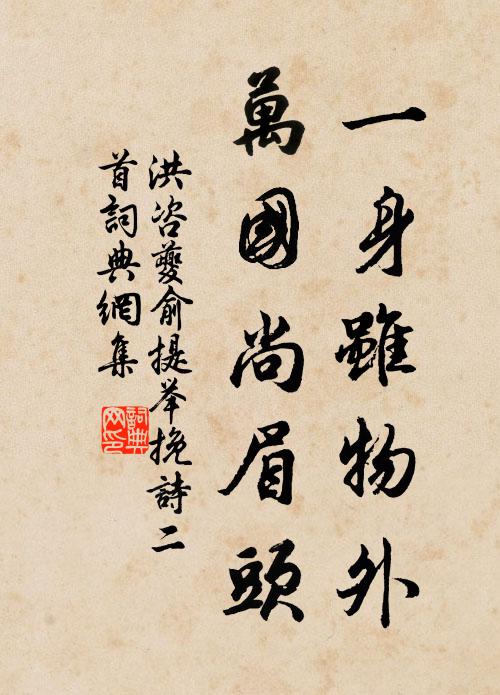 一身雖物外
萬國尚眉頭
洪咨夔俞提举挽詩二
首詞典網集
詞典网印